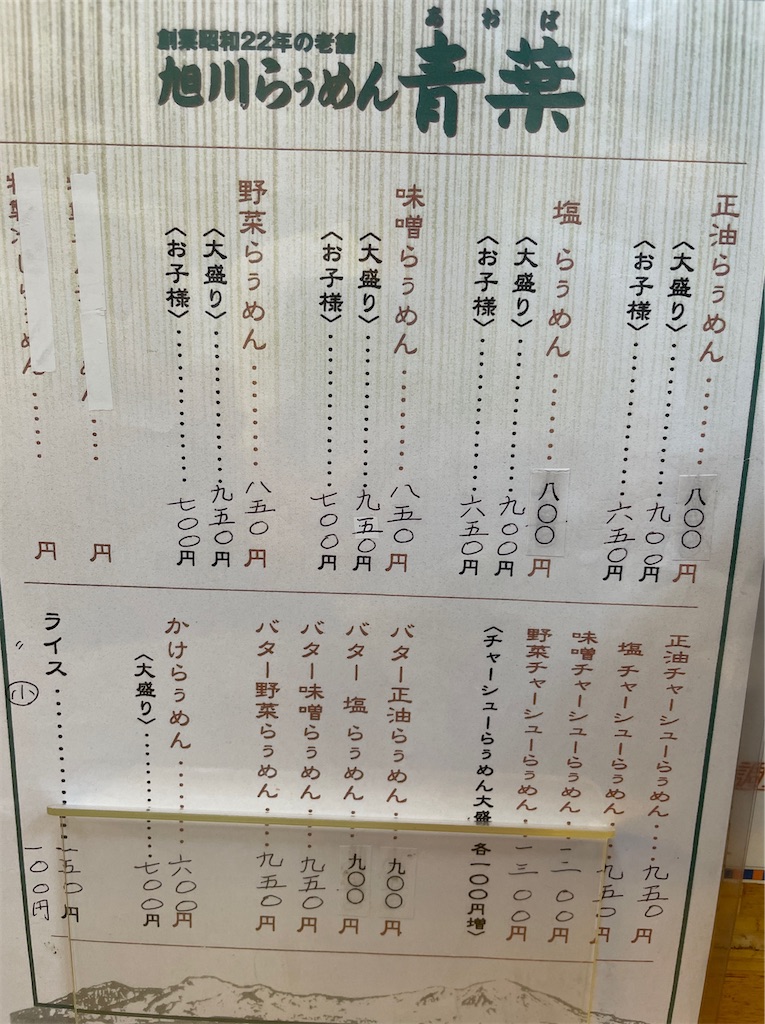 創業昭和22年の老舗
あおば
旭川らぅめん青葉
正油らぅめん………八〇〇円
〈大盛り〉…………九〇〇円
〈お子様〉…………六五〇円
塩 らぅめん………八〇〇円
〈大盛り〉…………九〇〇円
〈お子様〉…………六五〇円
味噌らぅめん………八五〇円
〈大盛り〉…………九五〇円
〈お子様〉…………七〇〇円
野菜らぅめん………八五〇円
〈大盛り〉…………九五〇円
〈お子様〉…………七〇〇円
円
らぅめん……円
正油チャーシューらぅめん……九五〇円
塩 チャーシューらぅめん……九五〇円
味噌チャーシューらぅめん……円
野菜チャーシューらぅめん……円
〈チャーシューらぅめん大盛 各一〇〇円増〉
バター正油らぅめん……九〇〇円
バター 塩 らぅめん……九〇〇円
バター味噌らぅめん……九五〇円
バター野菜らぅめん……九五〇円
かけらぅめん………六〇〇円
〈大盛り〉…………七〇〇円
ライス…………一五〇円
〃 小 一〇〇円